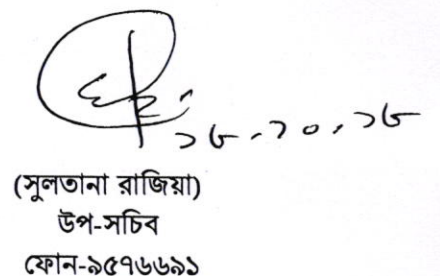 ১৮.১০.১৮
(সুলতানা রাজিয়া)
উপ-সচিব
ফোন-৯৫৭৬৬৯১